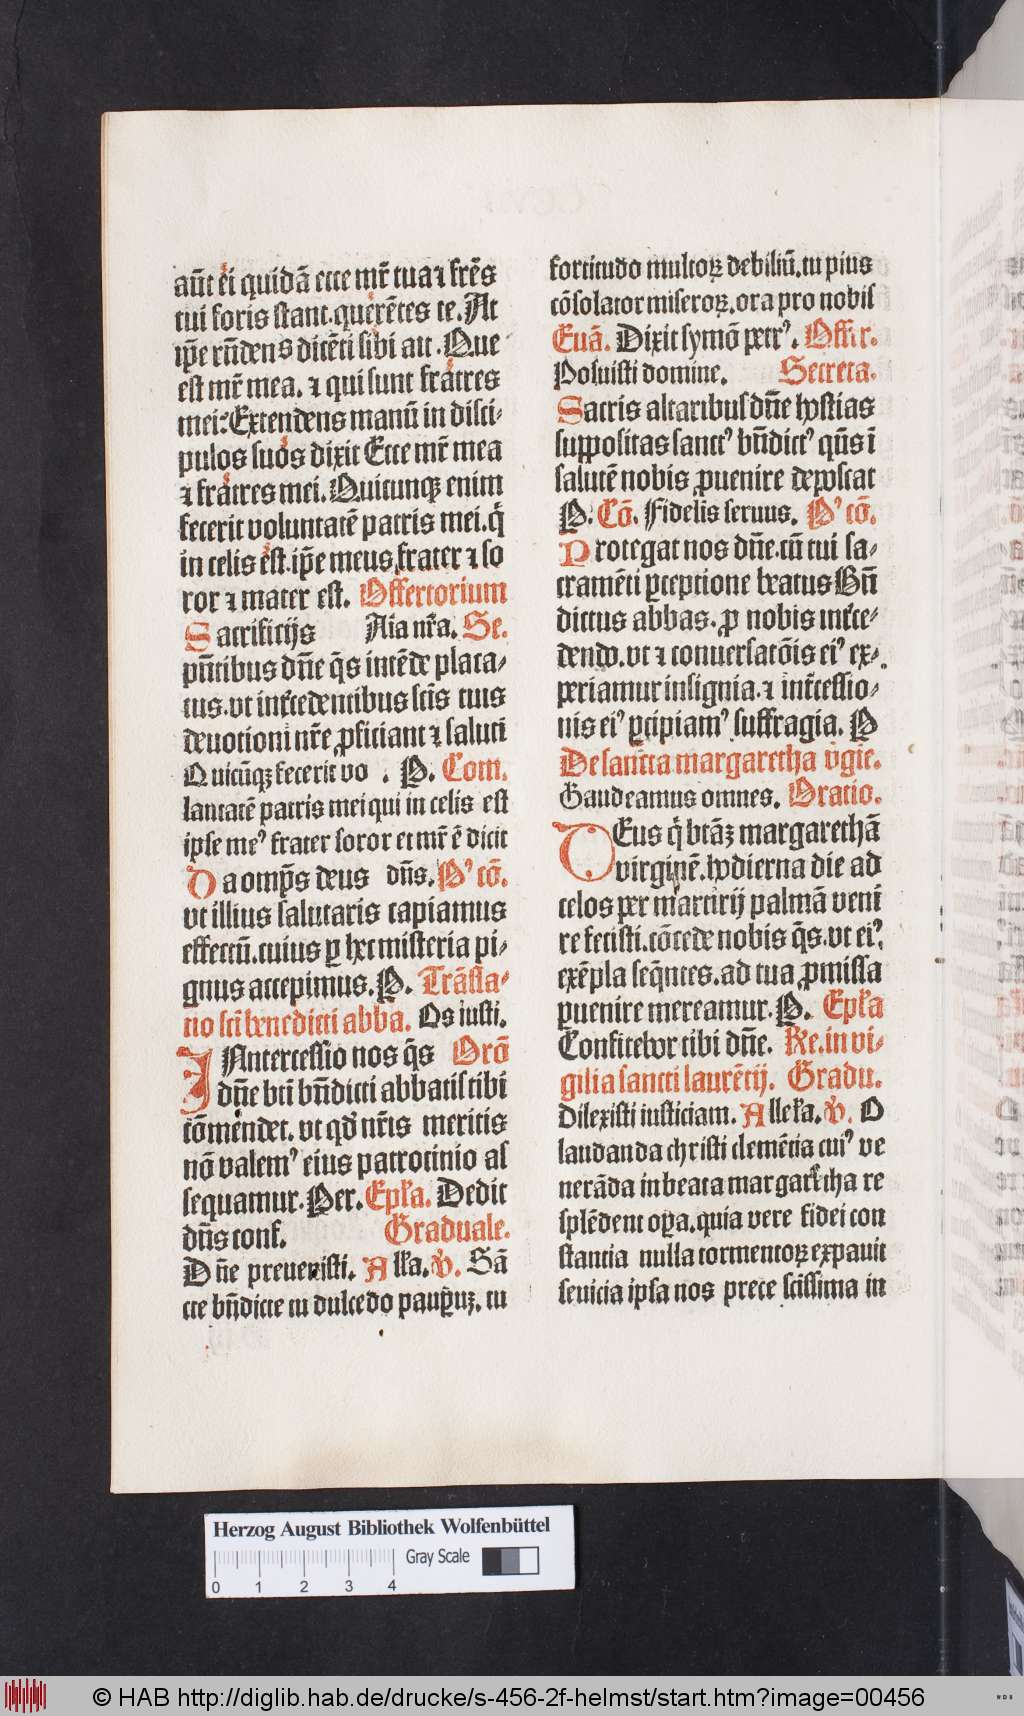 aūt ei quidā ecce mr̄ tua ⁊ frēs
tui foris stant. querētes te. At
ip̄e rn̄dens dicēti sibi ait. Que
est mr̄ mea. ⁊ qui sunt fratres
mei: Extendens manū in disci⸗
pulos suos dixit Ecce mr̄ mea
⁊ fratres mei. Quicunqꝫ enim
fecerit voluntatē patris mei. q̇
in celis est. ip̄e meus frater ⁊ so
ror ⁊ mater est. Offertorium
Sacrificijs Aīa nr̄a. Se.
pn̄tibus dn̄e q̄s intēde placa⸗
tus. vt int̄cedentibus scīs tuis
deuotioni nr̄e ꝓficiant ⁊ saluti
Quicūqꝫ fecerit vo . P. Com.
lantatē patris mei qui in celis est
ipse meꝰ frater soror et mr̄ ē dicit
Da omp̄s deus dn̄s. Pꝰ cō.
vt illius salutaris capiamus
effectū. cuius ꝑ hec misteria pi⸗
gnus accepimus. P. Trāsla⸗
tio scī benedicti abba. Os iusti.
INtercessio nos q̄s Orō
dn̄e btī bn̄dicti abbatis tibi
cōmendet. vt qd̓ nr̄is meritis
nō valemꝰ eius patrocinio as
sequamur. Per. Epl̄a. Dedit
dn̄s conf. Graduale.
Dn̄e preuenisti. All̄a. V̓. Sā
cte bn̄dicte tu dulcedo pauꝑuꝫ. tu
fortitudo multoꝝ debiliū. tu pius
cōsolator miseroꝝ. ora pro nobis
Euā. Dixit symō petrꝰ. Offer.
Posuisti domine. Secreta.
Sacris altaribus dn̄e hostias
suppositas sanctꝰ bn̄dictꝰ qn̄s ī
salutē nobis ꝓuenire deposcat
P. Cō. Fidelis seruus. Pꝰ cō.
Protegat nos dn̄e. cū tui sa⸗
cramēti ꝑceptione beatus Bn̄
dictus abbas. ꝓ nobis int̄ce⸗
dendo. vt ⁊ conuersatōis eiꝰ ex⸗
periamur insignia. ⁊ int̄cessio⸗
nis eiꝰ ꝑcipiamꝰ suffragia. P
De sancta margaretha v̓gīe.
Gaudeamus omnes. Oratio.
DEus q̇ btāꝫ margarethā
virginē. hodierna die ad
celos per martirij palmā veni
re fecisti. cōcede nobis q̄s. vt eiꝰ.
exēpla seqn̄tes. ad tua ꝓmissa
ꝑuenire mereamur. P. Epl̄a
Confitebor tibi dn̄e. Re. in vi⸗
gilia sancti laurētij. Gradu.
Dilexisti iusticiam. Allel̄a. V̓. O
laudanda christi clemētia cuiꝰ ve
nerāda in beata margaretha re
splēdent oꝑa. quia vere fidei con
stantia nulla tormentoꝝ expauit
seuicia ipsa nos prece scissima in
Herzog August Bibliothek Wolfenbüttel
0 1 2 3 4 Gray Scale
© HAB http://diglib.hab.de/drucke/s-456-2f-helmst/start.htm?image=00456